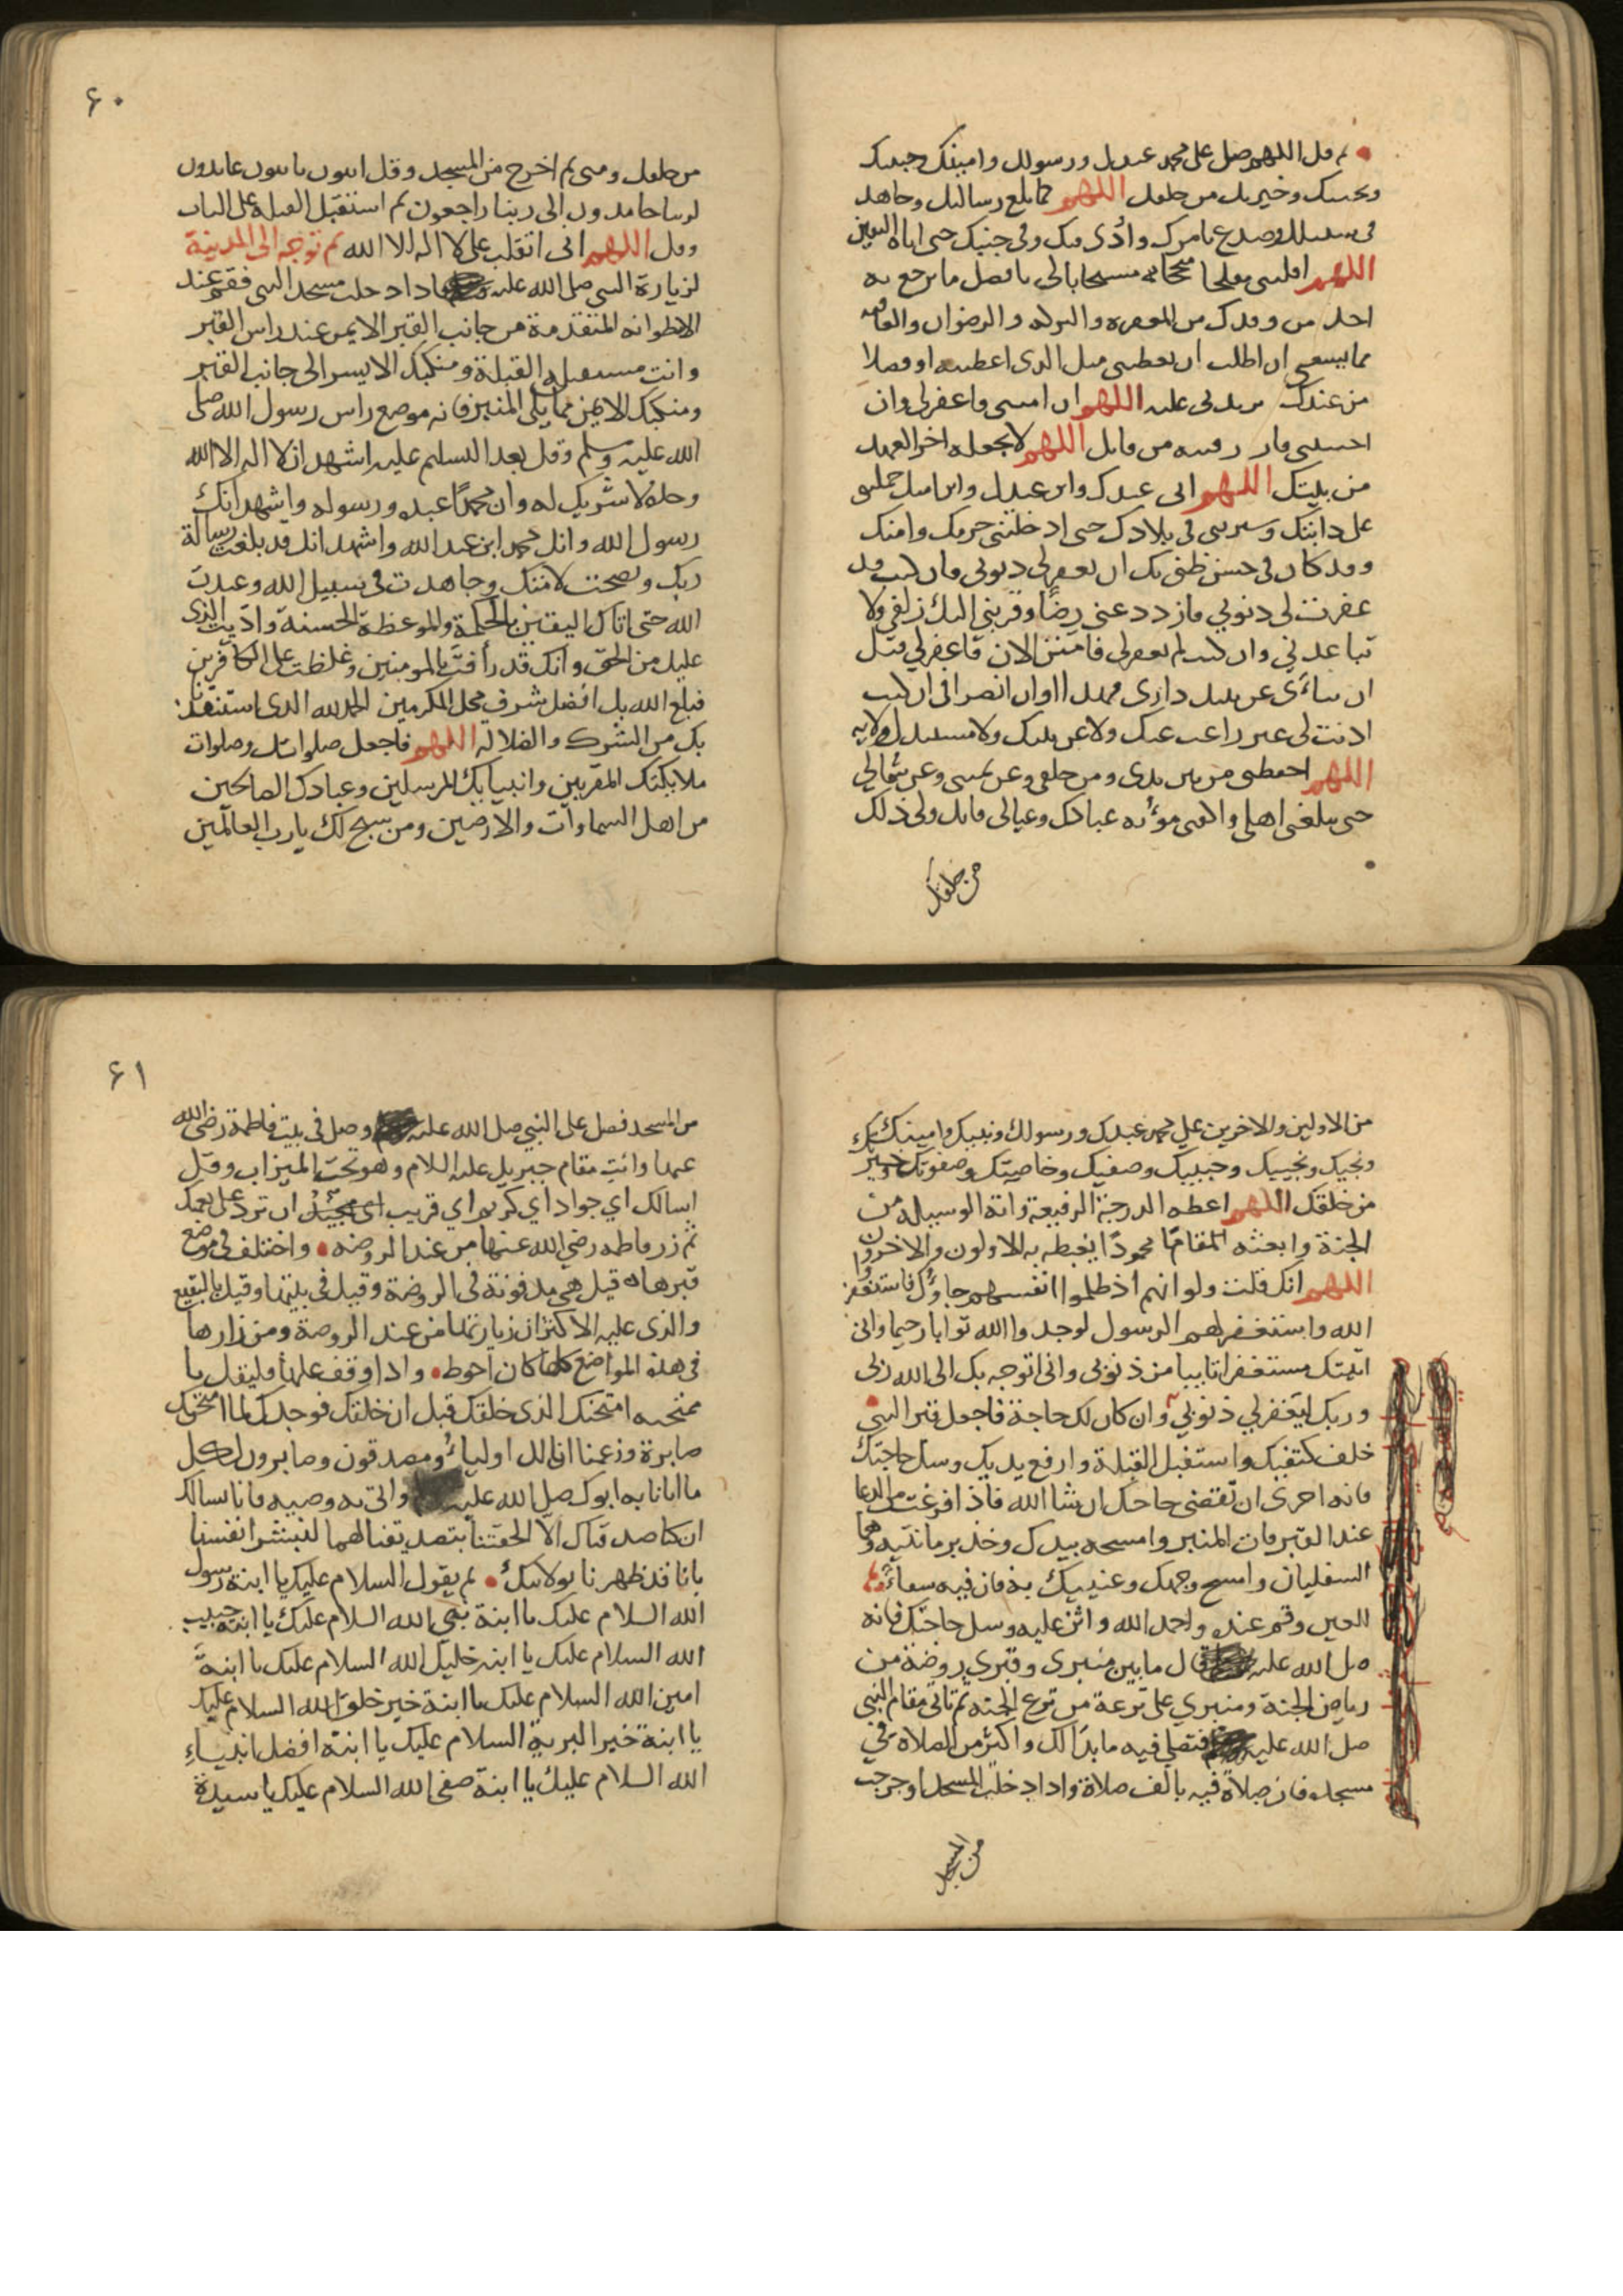 ثم قل اللهم صل على محمد عبدك ورسولك وامينك وحبيبك
ونجيبك وخيرتك من خلقك اللهم كما بلغ رسالاتك وجاهد
في سبيلك وصدع بامرك واُذى فيك وفى جنبك حتى اتاه اليقين
اللهم اقلبنى مفلحا منجحا مستجابا لى بافضل ما يرجع به
احد من وفدك من المغفرة والبركة والرضوان والعافية
مما يسعنى ان اطلب ان تعطينى مثل الذى اعطيته او فضلا
من عندك تزيدنى عليه اللهم ان امتنى فاغفر لى وان
احييتنى فارزقنيه من قابل اللهم لا تجعله اخر العهد
من بيتك اللهم انى عبدك وابن عبدك وابن امتك حملتنى
على دابتك وسيرتنى في بلادك حتى ادخلتنى حرمك وامنك
وقد كان فى حسن ظنى بك ان تغفر لى ذنوبى فان كنت قد
غفرت لى ذنوبي فازدد عنى رضًا وقربنى اليك زلفى ولا
تباعدني وان كنت لم تغفر لى فامنن الان فاغفر لي قبل
ان تناءى عن بيتك دارى فهذا اوان انصرافى ان كنت
اذنت لى غير راغب عنك ولا عن بيتك ولا مستبدل ولا به
اللهم احفظنى من بين يدى ومن خلفى وعن يمينى وعن شمالي
حتى تبلغنى اهلى واكفنى مؤنه عبادك وعيالى فانك ولى ذلك
من خلقك
۶۰
من خلقك ومنى ثم اخرج من المسجد وقل ائبون تائبون عابدون
لربنا حامدون الى ربنا راجعون ثم استقبل القبله على الباب
وقل اللهم انى انقلب على لا اله الا الله ثم توجه الى المدينة
لزيارة النبى صلى الله عليه فاذا دخلت مسجد النبى فقم عند
الاطوانه المتقدمة من جانب القبر الايمن عند راس القبر
وانت مستقبل القبلة ومنكبك الايسر الى جانب القبر
ومنكبك الايمن مما يلى المنبر فانه موضع راس رسول الله صلى
الله عليه وسلم وقل بعد التسليم عليه اشهد ان لا اله الا الله
وحده لا شريك له وان محمدًا عبده ورسوله واشهد انك
رسول الله وانك محمد ابن عبد الله واشهد انك قد بلغت رسالة
ربك ونصحت لامتك وجاهدت فى سبيل الله وعبدت
الله حتى اتاك اليقين بالحكمة والموعظة الحسنة وادّيت الذى
عليك من الحق وانك قد رأفت بالمومنين وغلظت على الكافرين
فبلغ الله بك افضل شرف محل المكرمين الحمد لله الذى استنقذنا
بك من الشرك والضلاله اللهم فاجعل صلواتك وصلوات
ملايكتك المقربين وانبيايك المرسلين وعبادك الصالحين
من اهل السماوات والارضين ومن سبح لك يا رب العالمين
من الاولين والاخرين علي محمد عبدك ورسولك ونبيك وامينك
ونجيك ونجيبك وحبيبك وصفيك وخاصيتك وصفوتك وخير
من خلقك اللهم اعطه الدرجة الرفيعة واته الوسيله من
الجنة وابعثه المقامًا محمودًا يغبطه به الاولون والاخرون
اللهم انك قلت ولو انهم اذ ظلموا انفسهم جاؤك فاستغفروا
الله واستغفر لهم الرسول لوجدوا الله توابا رحيما وانى
اتيتك مستغفرا تايبا من ذنوبى وانى اتوجه بك الى الله ربى
وربك ليغفر لي ذنوبي وان كان لك حاجة فاجعل قبر النبى
خلف كتفيك واستقبل القبلة وارفع يديك وسل حاجتك
فانه احرى ان تقضى حاجتك ان شا الله فاذا فرغت من الدعا
عند القبر فات المنبر وامسحه بيدك وخذ برمانتيه وهما
السفليان وامسح وجهك وعينيك به فان فيه شفاءً
للعين وقم عنده واحمد الله واثن عليه وسل حاجتك فانه
صلى الله عليه قال ما بين منبرى وقبرى روضة من
رياض الجنة ومنبري على ترعة من ترع الجنه ثم تاتى مقام النبى
صلى الله عليه فتصلي فيه ما بدا لك واكثر من الصلاة في
مسجده فان صلاة فيه بالف صلاة واذا دخلت المسجد او خرجت
من المسجد
۶۱
من المسجد فصل على النبي صلى الله عليه وصل فى بيت فاطمة رضى الله
عنها وائت مقام جبريل عليه السلام وهو تحت الميزاب وقل
اسالك اي جواد اي كريم اي قريب ان ترد على نعمتك
ثم زر فاطمه رضي الله عنها من عند الروضه واختلف في موضع
قبرها قيل هي مدفونة فى الروضة وقيل فى بيتها وقيل بالبقيع
والذى عليه الاكثر ان زيارتها من عند الروضة ومن زارها
فى هذه المواضع كلها كان احوط واذا وقف عليها وليقل يا
ممتحنه امتحنك الذى خلقك قبل ان خلقك فوجدك لما امتحنك
صابرة وزعمنا انا لك اولياء ومصدقون وصابرون لكل
ما اتانا به ابوك صلى الله عليه واتى به وصيه فانا نسالك
ان كنا صدقناك الا الحقتنا بتصديقنا لهما لنبشر انفسنا
بانا قد طهرنا بولايتك ثم يقول السلام عليك يا ابنة رسول
الله السلام عليك يا ابنة نبى الله السلام عليك يا ابنة حبيب
الله السلام عليك يا ابنة خليل الله السلام عليك يا ابنة
امين الله السلام عليك يا ابنة خير خلق الله السلام عليك
يا ابنة خير البرية السلام عليك يا ابنة افضل انبياء
الله السلام عليك يا ابنة صفى الله السلام عليك يا سيدة